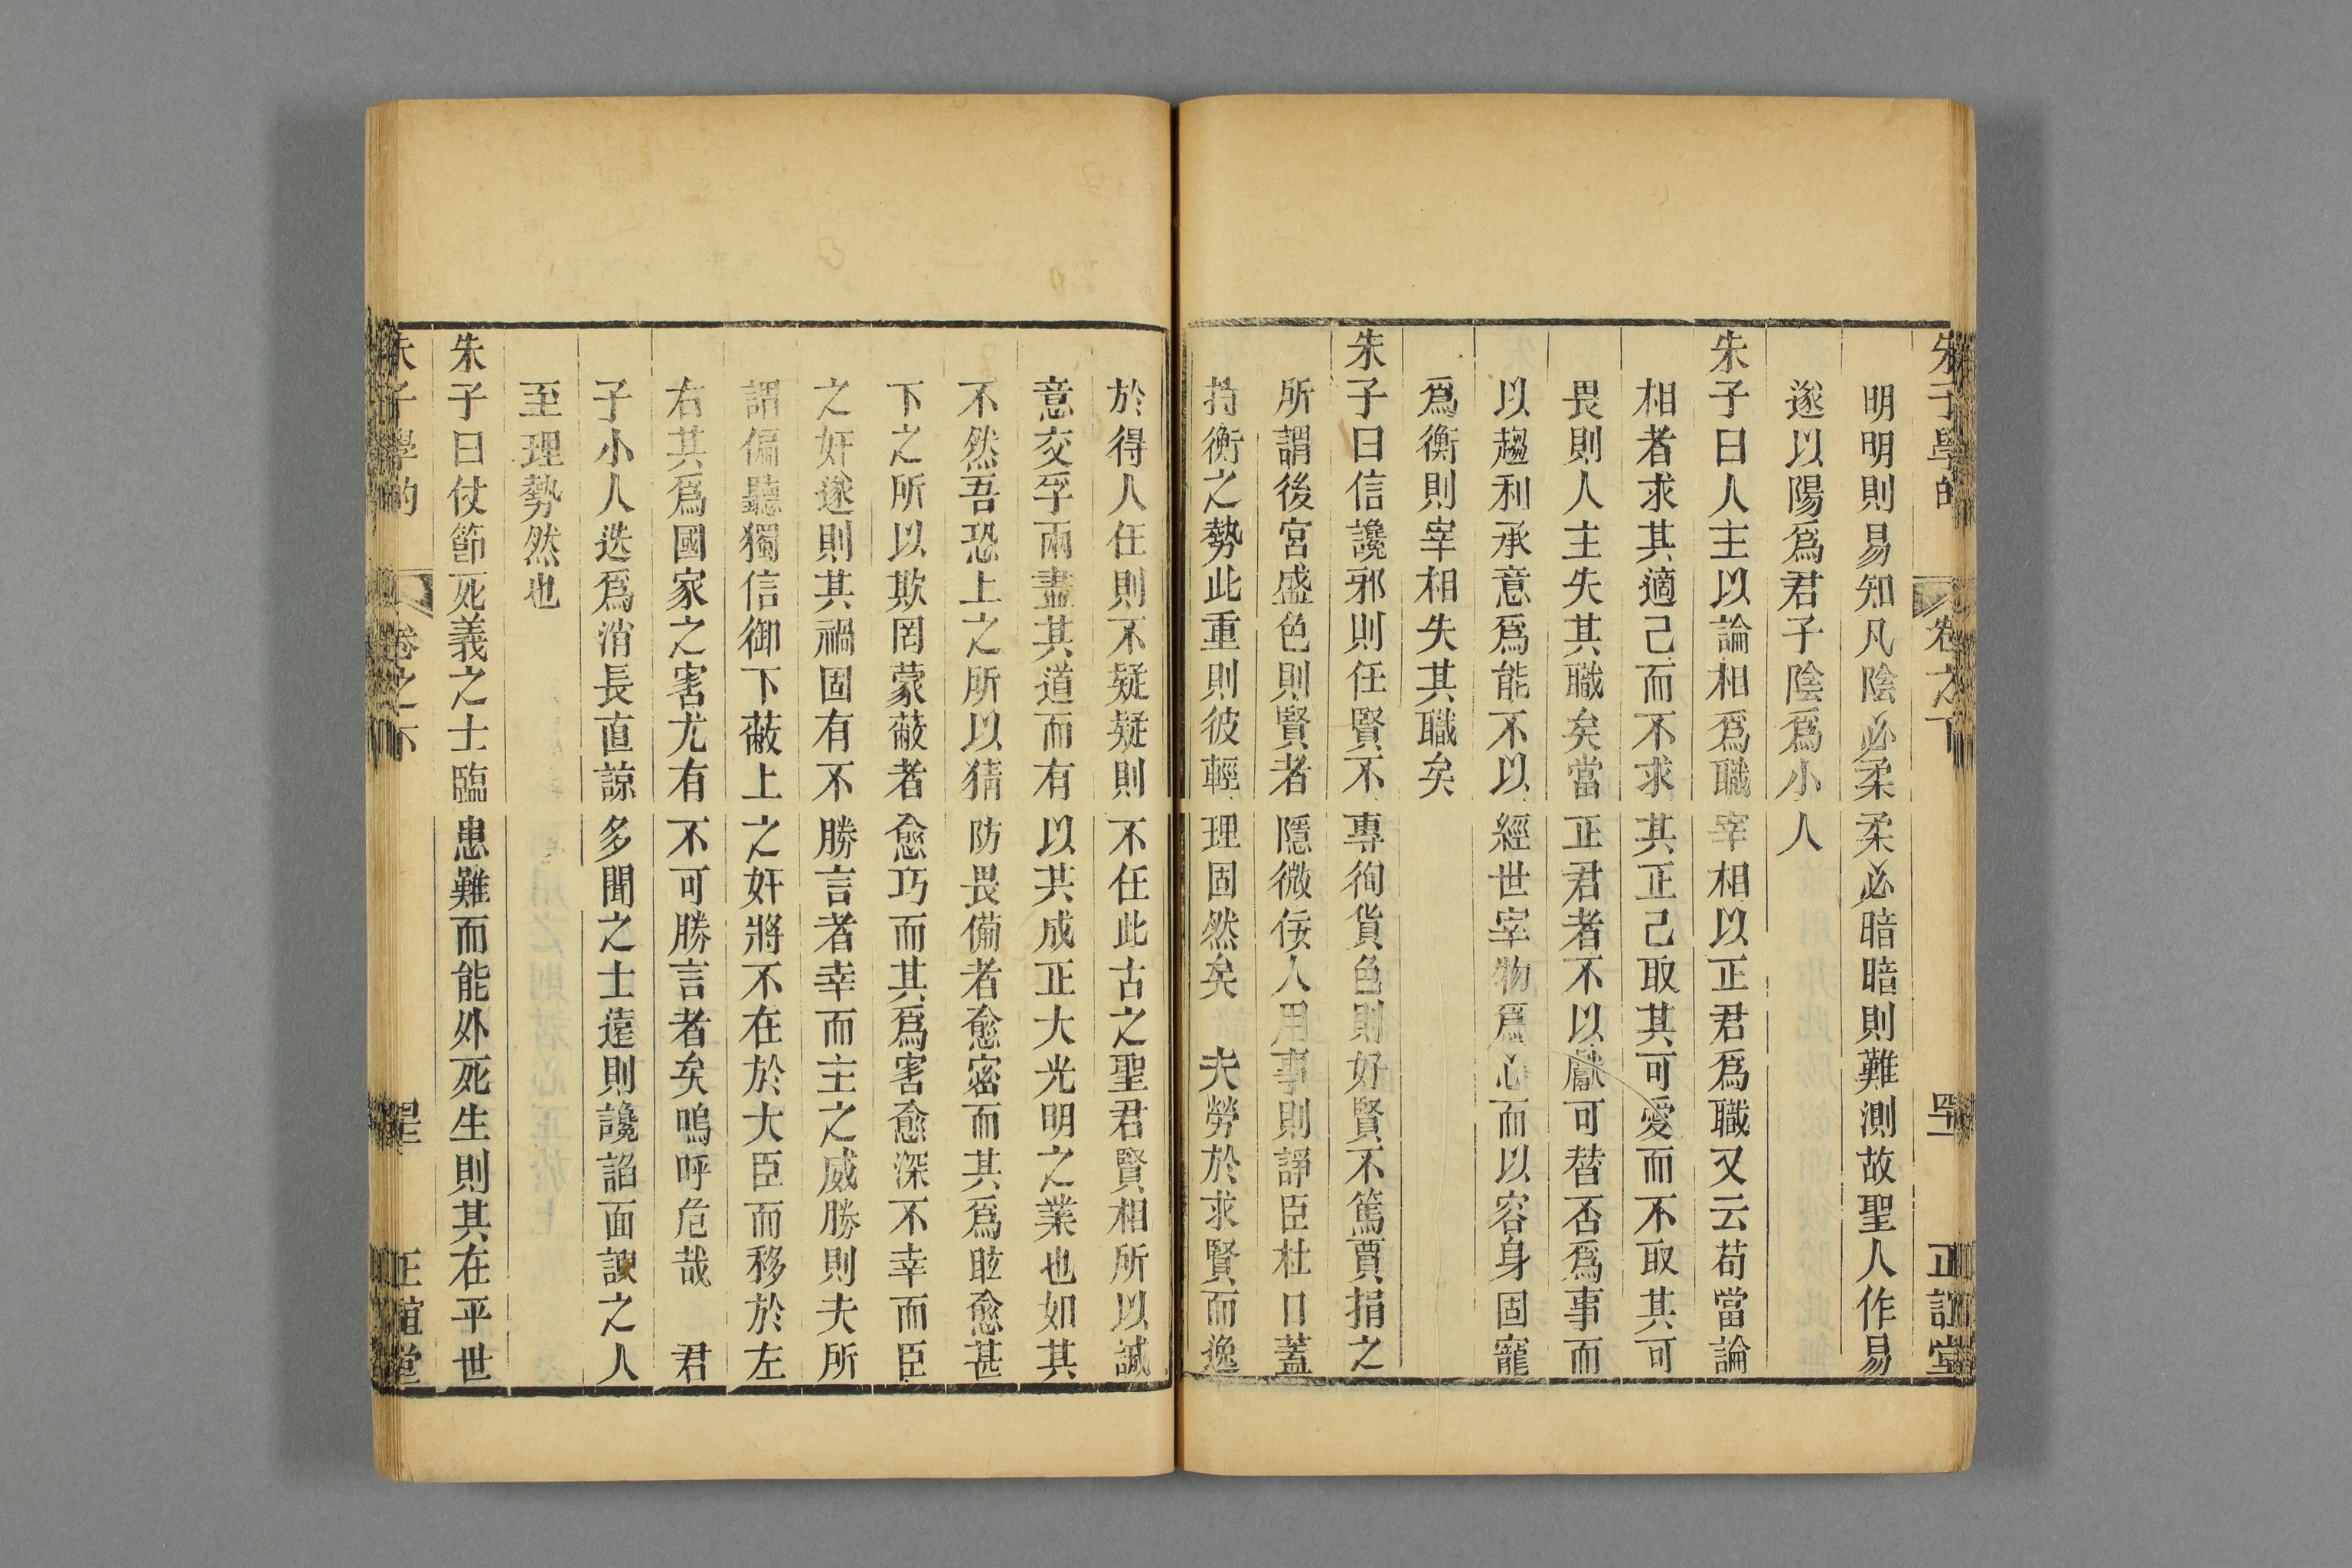 朱子學的 卷之下 四十 正誼堂
明明則易知凡陰必柔柔必暗暗則難測故聖人作易
遂以陽爲君子陰爲小人
朱子曰人主以論相爲職宰相以正君爲職又云苟當論
相者求其適己而不求其正己取其可愛而不取其可
畏則人主失其職矣當正君者不以獻可替否爲事而
以趨利承意爲能不以經世宰物爲心而以容身固寵
爲衡則宰相失其職矣
朱子曰信讒邪則任賢不專徇貨色則好賢不篤賈捐之
所謂後宮盛色則賢者隱微佞人用事則諍臣杜口蓋
持衡之勢此重則彼輕理固然矣 夫勞於求賢而逸
於得人任則不疑疑則不任此古之聖君賢相所以誠
意交孚兩盡其道而有以共成正大光明之業也如其
不然吾恐上之所以猜防畏備者愈密而其爲眩愈甚
下之所以欺罔蒙蔽者愈巧而其爲害愈深不幸而臣
之奸遂則其禍固有不勝言者幸而主之威勝則夫所
謂偏聽獨信御下蔽上之奸將不在於大臣而移於左
右其爲國家之害尤有不可勝言者矣嗚呼危哉 君
子小人迭爲消長直諒多聞之士遠則讒諂面諛之人
至理勢然也
朱子曰仗節死義之士臨患難而能外死生則其在平世
朱子學的 卷之下 正誼堂